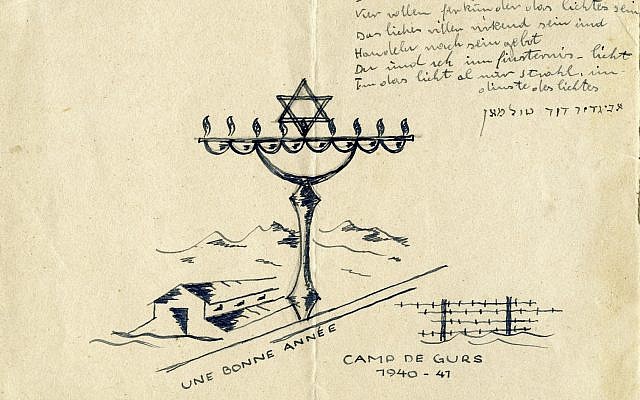 Vier wollen ferkünder des lichtes sein
Das liches willen wirkend sein und
Handeln nach sein gebot
Du und ich im finsternis - licht
Im das licht al nur strahl, im
dinste des lichtes
אביגדור דוד
UNE BONNE ANNÉE
CAMP DE GURS
1940 - 41